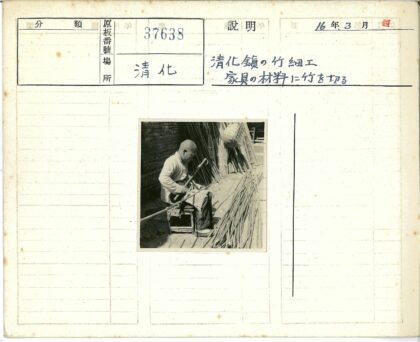 分類
原板番號
37638
場所
清化
説明
16年3月
清化鎮の竹細工
家具の材料に竹を切る